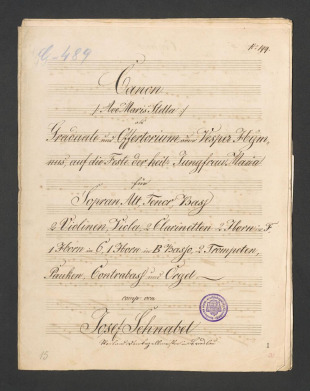 G-489
N: 199.
Canon
/: Ave Maris Stella :/
als
Graduale und Offertorium oder Vesper Hÿm,
nus auf die Feste der heil: Jungfrau Maria
für
Sopran Alt Tenor Bass
2 Violinen, Viola, 2 Clarinetten 2 Horn in F.
1 Horn in C, 1 Horn in B Basso, 2 Trompeten,
Pauken, Contrabass und Orgel.
comp: von
Josef Schnabel
1